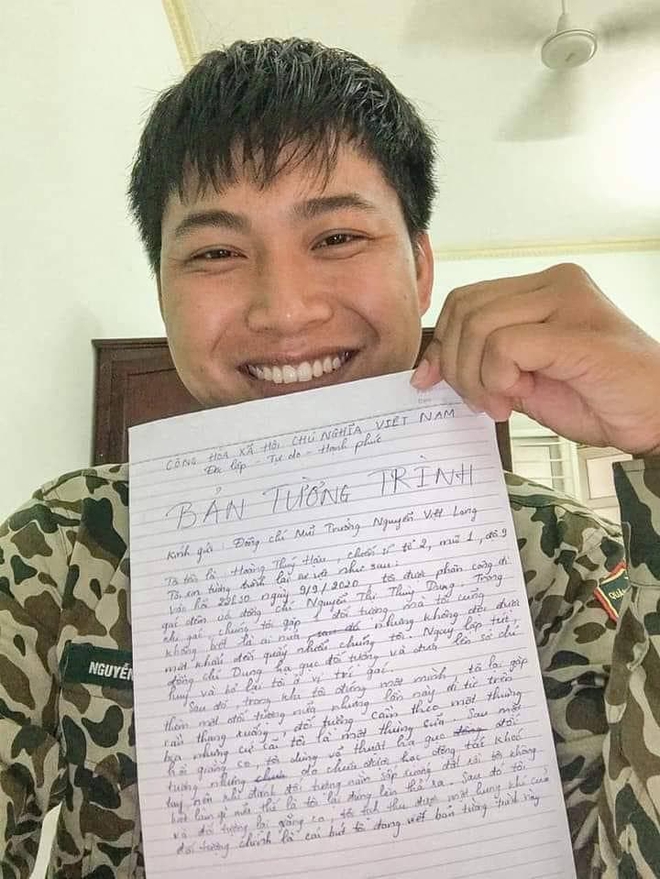 CỘNG HÒA XÃ HỘI CHỦ NGHĨA VIỆT NAM
Độc lập - Tự do - Hạnh phúc
BẢN TƯỜNG TRÌNH
Kính gửi: Đồng chí Mũi Trưởng Nguyễn Việt Long
Tô tôi là: Hoàng Thúy Hảo, chiến sĩ tổ 2, mũi 1, đồ 9
Tôi xin tường trình lại sự việc như sau:
Vào hồi 22h30 ngày 9/9/2020, tôi được phân công đi
gác đêm và đồng chí Nguyễn Thị Thùy Dung. Trong
khi gác, chúng tôi gặp 1 đối tượng mà tôi cũng
không biết là ai nữa nhưng không đội được
một khẩu đến quấy nhiễu chúng tôi. Ngay lập tức,
đồng chí Dung hạ gục đối tượng và đưa lên sở chỉ
huy và bỏ lại tôi ở vị trí gác.
Sau đó, trong khi tôi đứng một mình, tôi lại gặp
thêm một đối tượng nữa nhưng lần này đi từ trên
cầu thang xuống, đối tượng cầm theo một thùng
bia nhưng cứ cãi tôi là một thùng sữa. Sau một
hồi giằng co, tôi dùng võ thuật hạ gục đối
tượng nhưng do chưa được học động tác khóa
tay nên khi đánh đối tượng nằm sấp xuống đất rồi tôi không
biết làm gì nữa thế là tôi lại đứng lên thở ra. Sau đó tôi
và đối tượng lại giằng co, tôi tịch thu được một hung khí của
đối tượng chính là cái bút tôi đang viết bản tường trình này
NGUYỄN